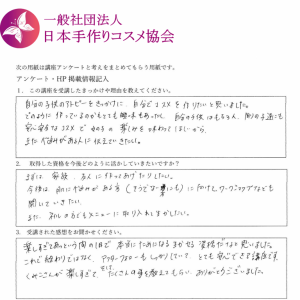 一般社団法人
日本手作りコスメ協会
次の用紙は講座アンケートと考えをまとめてもらう用紙です。
アンケート・HP掲載情報記入
１．この講座を受講したきっかけや理由を教えてください。
自分の子供のアトピーをきっかけに、自分でコスメを作りたいと思いました。
どのように作っているのかもとても興味もあったし、自分の子供はもちろん、周りの子達にも
安心安全なコスメで
また悩みがある人に伝えていきたい。
２．取得した資格を今後どのように活かしていきたいですか？
まずは家族、友人に作ってあげたりしたい。
今後は、肌に悩みがある方（そうでない方にも）に向けしワークショップなども
開いていきたい。
また、メニューに取り入れしまかしたい。
３．受講された感想をお聞かせください。
楽しすぎてあっという間の1日で本当にためになるまなぶ資格だなと思いました。
これで終わりではなく、アフターフォローもしっかりしていて、とても安心できる講座です。
楽しすぎて、たくさんの事を教えてもらい、ありがとうございました。